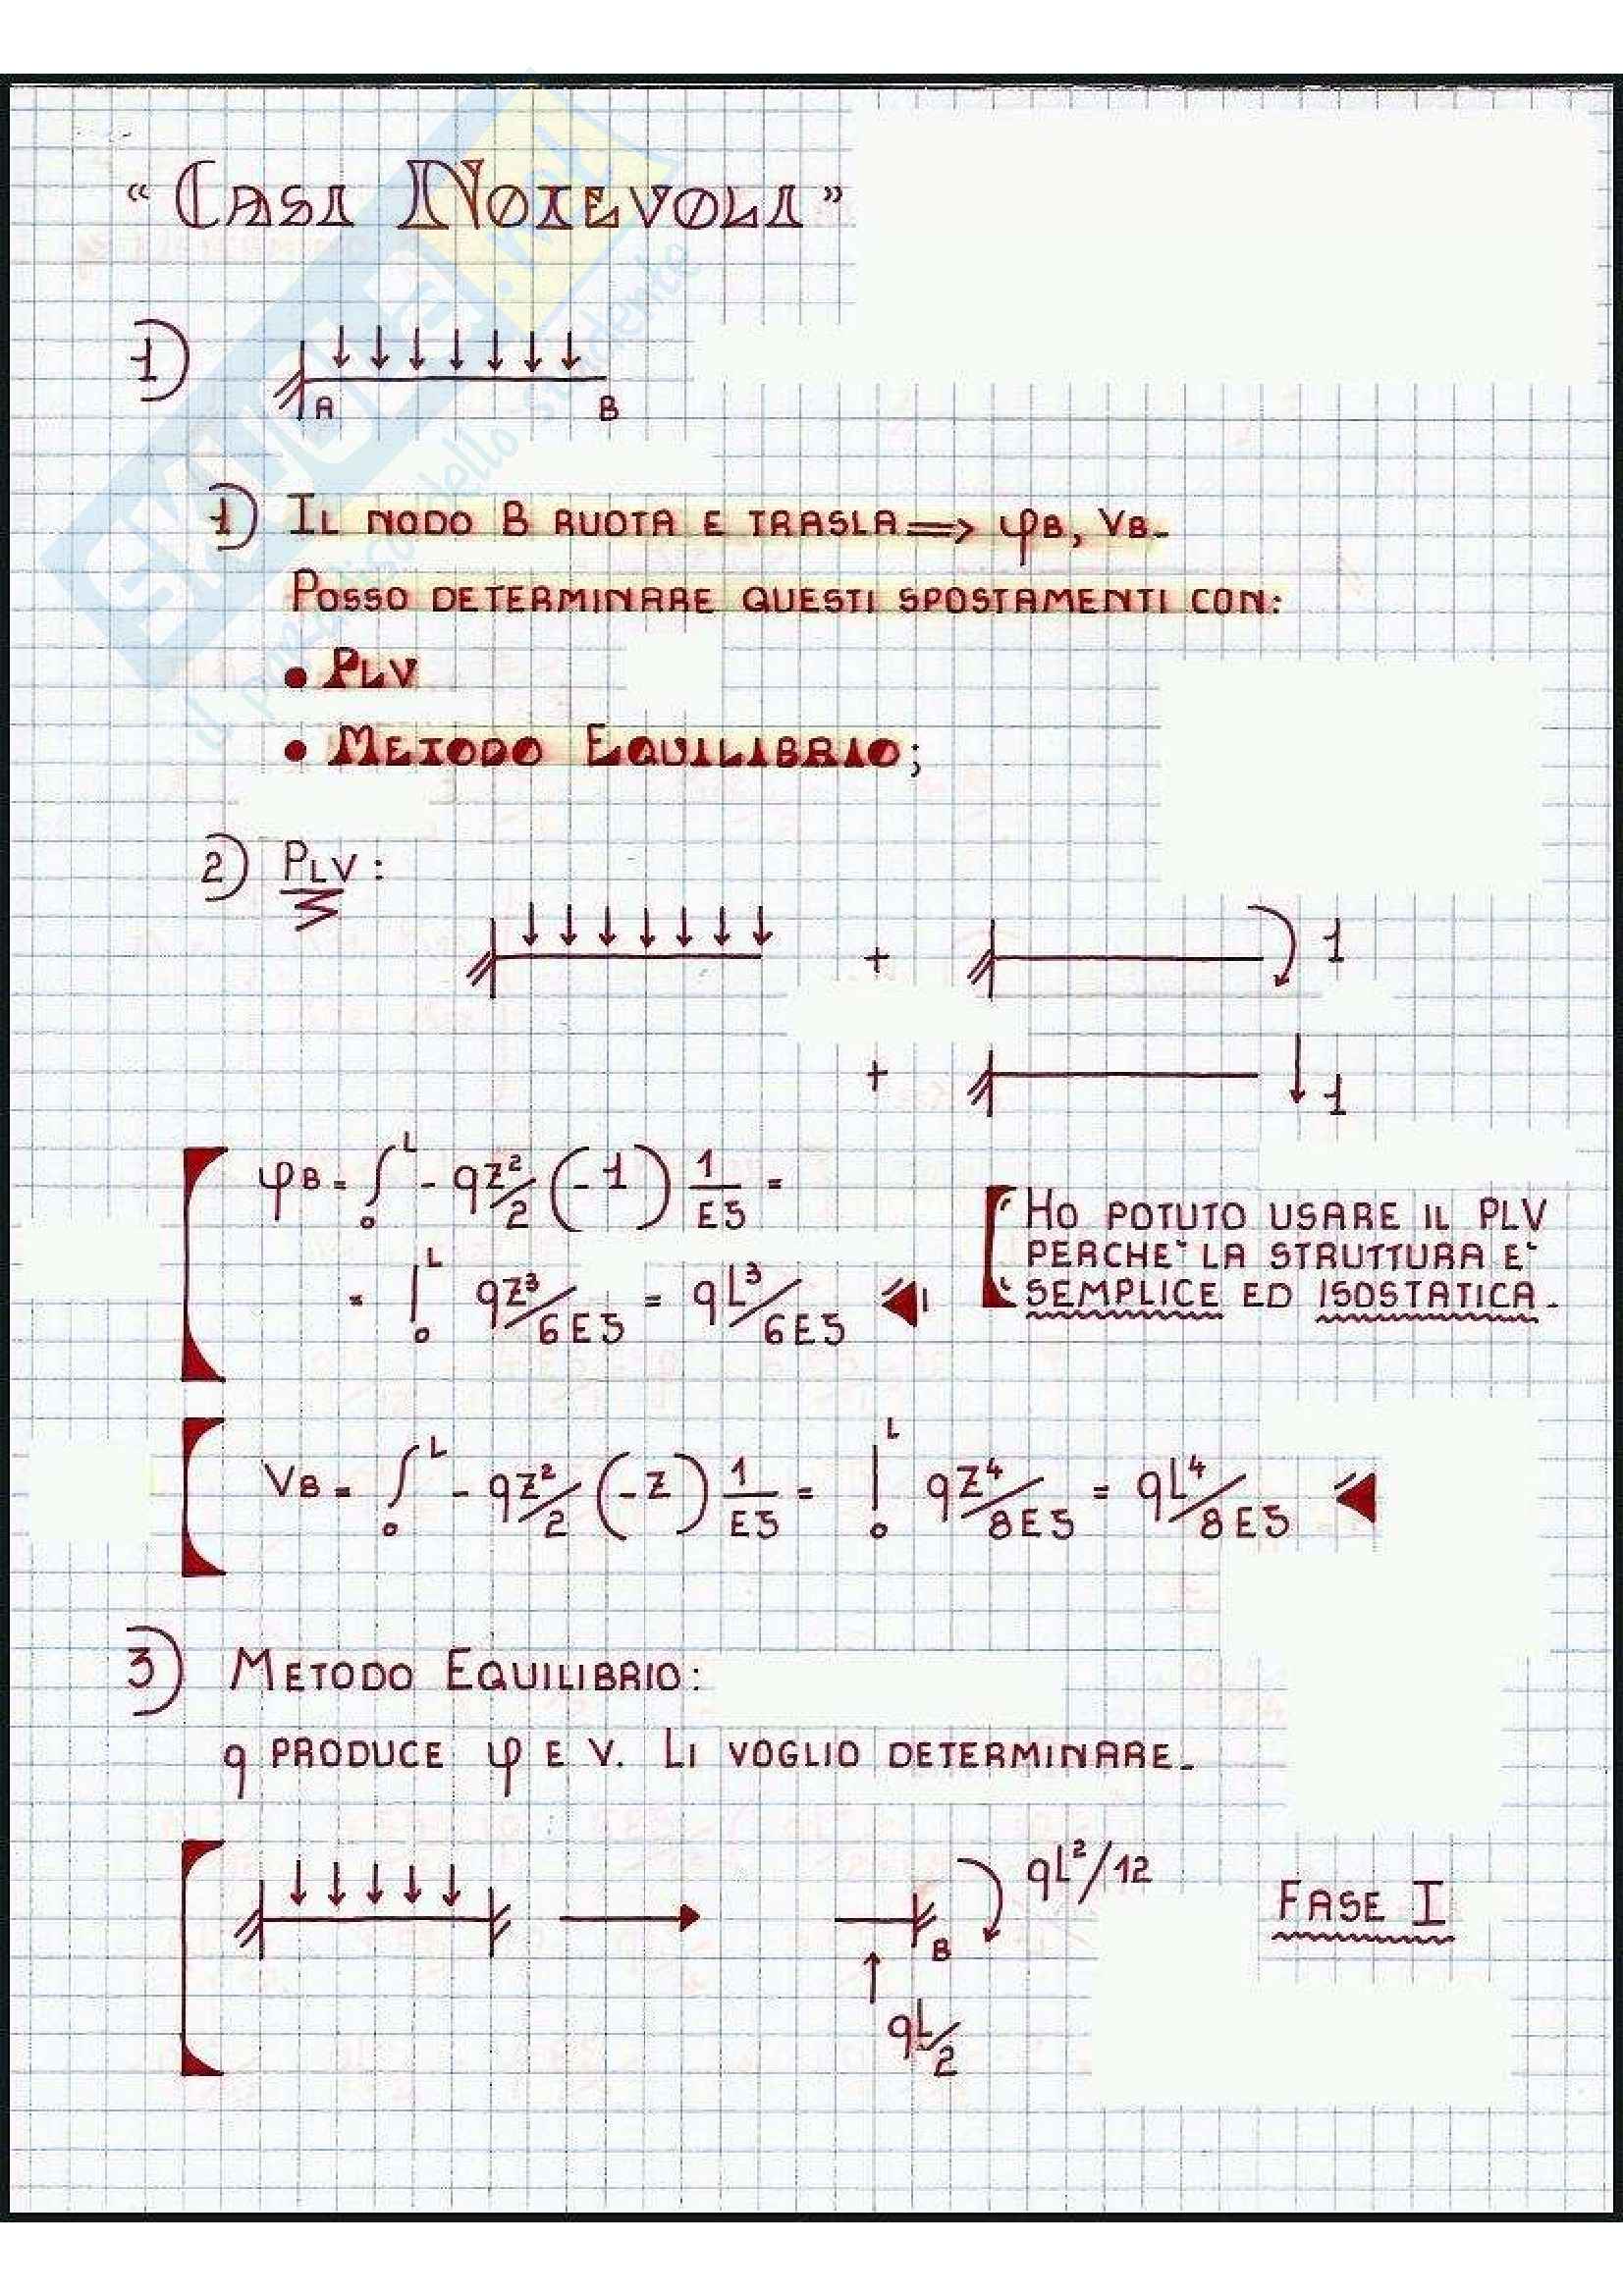 “CASI NOTEVOLI”
1)
A B
1) IL NODO B RUOTA E TRASLA ⟹ φB, VB.
POSSO DETERMINARE QUESTI SPOSTAMENTI CON:
• PLV
• METODO EQUILIBRIO;
2) PLV:
+ 1
+ 1
φB = ∫₀ᴸ - qz²/2 (-1) 1/EJ =
= |₀ᴸ qz³/6EJ = qL³/6EJ
HO POTUTO USARE IL PLV
PERCHE' LA STRUTTURA E'
SEMPLICE ED ISOSTATICA.
VB = ∫₀ᴸ - qz²/2 (-z) 1/EJ = |₀ᴸ qz⁴/8EJ = qL⁴/8EJ
3) METODO EQUILIBRIO:
q PRODUCE φ E V. LI VOGLIO DETERMINARE.
B qL²/12 FASE I
qL/2
SKUOLA.net
il paradiso dello studente